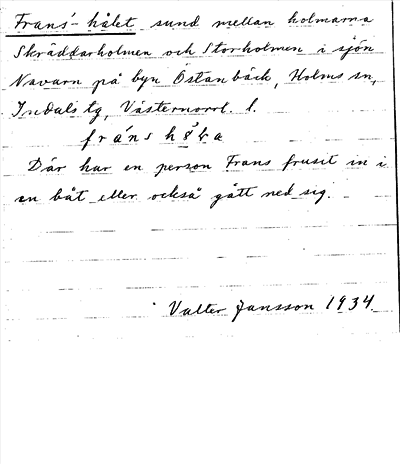 Frans-hålet sund mellan holmarna
Skräddarholmen och Storholmen i sjön
Navarn på byn Östanbäck, Holms sn,
Indals tg, Västernorrl. l.
Där har en person Frans frusit in i
en båt eller också gått ned sig.
Valter Jansson 1934.